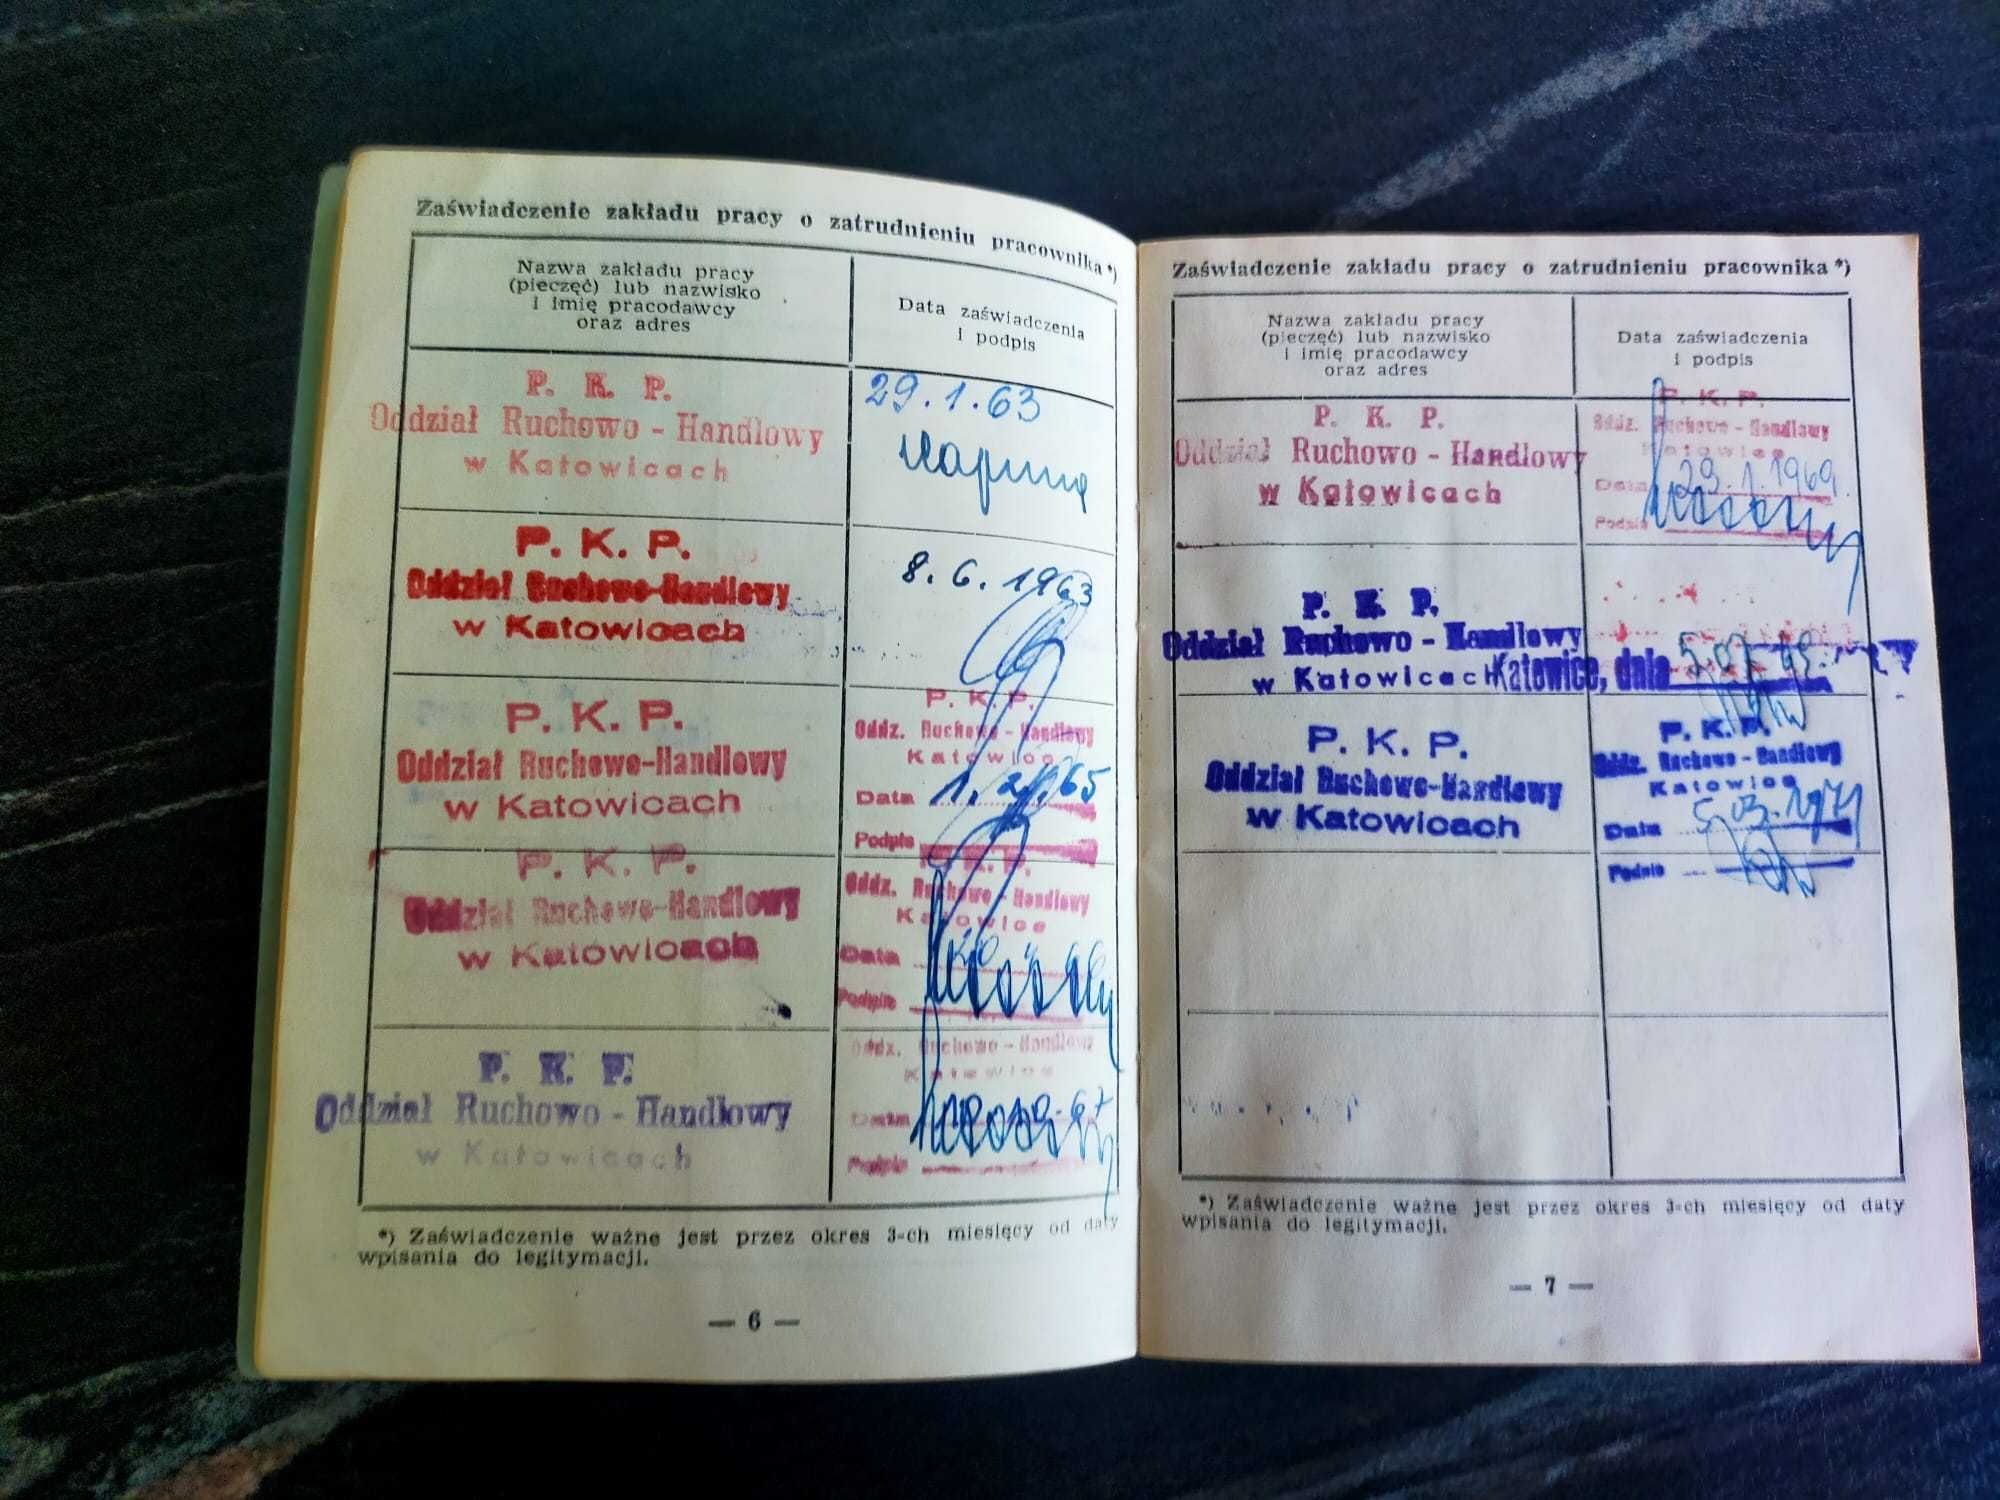 Zaświadczenie zakładu pracy o zatrudnieniu pracownika*)
Nazwa zakładu pracy
(pieczęć) lub nazwisko
i imię pracodawcy
oraz adres
Data zaświadczenia
i podpis
P. K. P.
Oddział Ruchowo - Handlowy
w Katowicach
29.1.63
P. K. P.
Oddział Ruchowo-Handlowy
w Katowicach
8.6.1963
P. K. P.
Oddział Ruchowo-Handlowy
w Katowicach
P. K. P.
Oddz. Ruchowo - Handlowy
Katowice
Data
Podpis
P. K. P.
Oddział Ruchowo-Handlowy
w Katowicach
P. K. P.
Oddz. Ruchowo - Handlowy
Katowice
Data
Podpis
P. K. P.
Oddział Ruchowo - Handlowy
w Katowicach
Oddz. Ruchowo - Handlowy
Katowice
Data
Podpis
*) Zaświadczenie ważne jest przez okres 3-ch miesięcy od daty
wpisania do legitymacji.
— 6 —
Zaświadczenie zakładu pracy o zatrudnieniu pracownika*)
Nazwa zakładu pracy
(pieczęć) lub nazwisko
i imię pracodawcy
oraz adres
Data zaświadczenia
i podpis
P. K. P.
Oddział Ruchowo - Handlowy
w Katowicach
P. K. P.
Oddz. Ruchowo - Handlowy
Katowice
Data 29.1.1969.
Podpis
P. K. P.
Oddział Ruchowo - Handlowy
w Katowicach
Katowice, dnia
P. K. P.
Oddział Ruchowo-Handlowy
w Katowicach
P. K. P.
Oddz. Ruchowo - Handlowy
Katowice
Data 5.03.1971
Podpis
*) Zaświadczenie ważne jest przez okres 3-ch miesięcy od daty
wpisania do legitymacji.
— 7 —